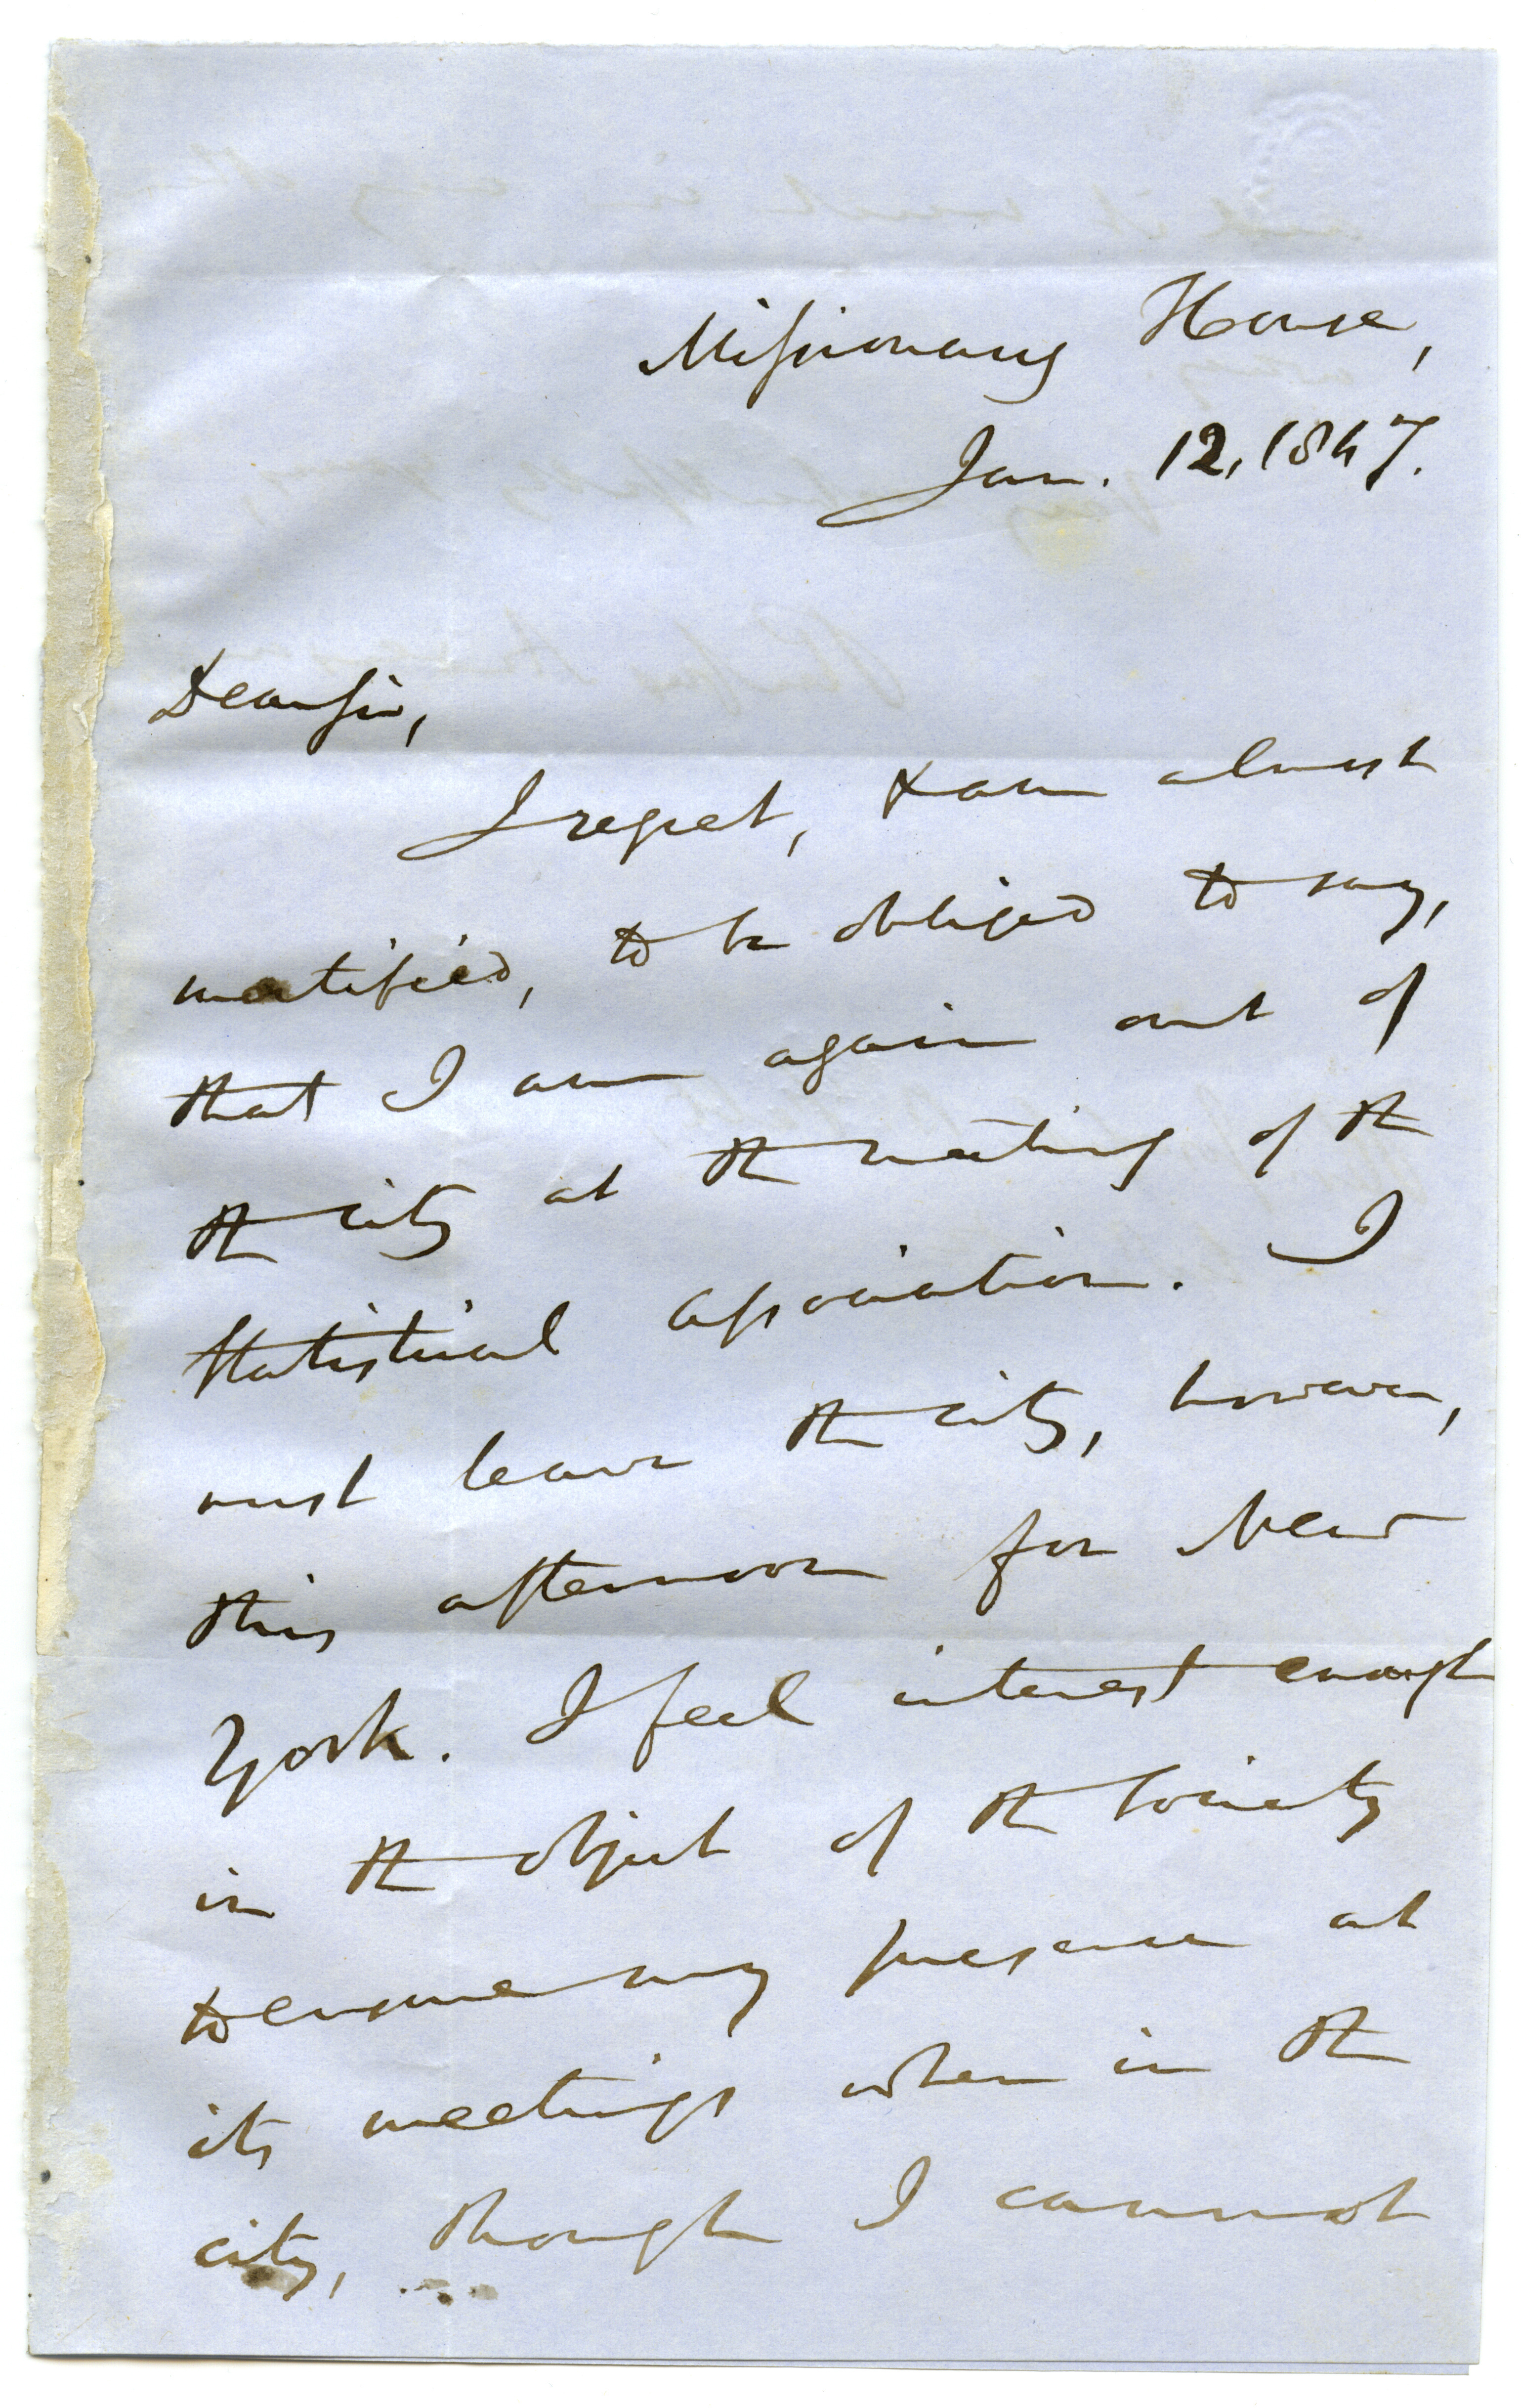 Missionary House,
Jan. 12, 1847.
Dear Sir,
I regret, & am almost
mortified, to be obliged to say,
that I am again out of
the city at the meeting of the
Statistical Association. I
must leave the city, however,
this afternoon for New
York. I feel interest enough
in the object of the Society
to ensure my presence at
its meetings when in the
city, though I cannot